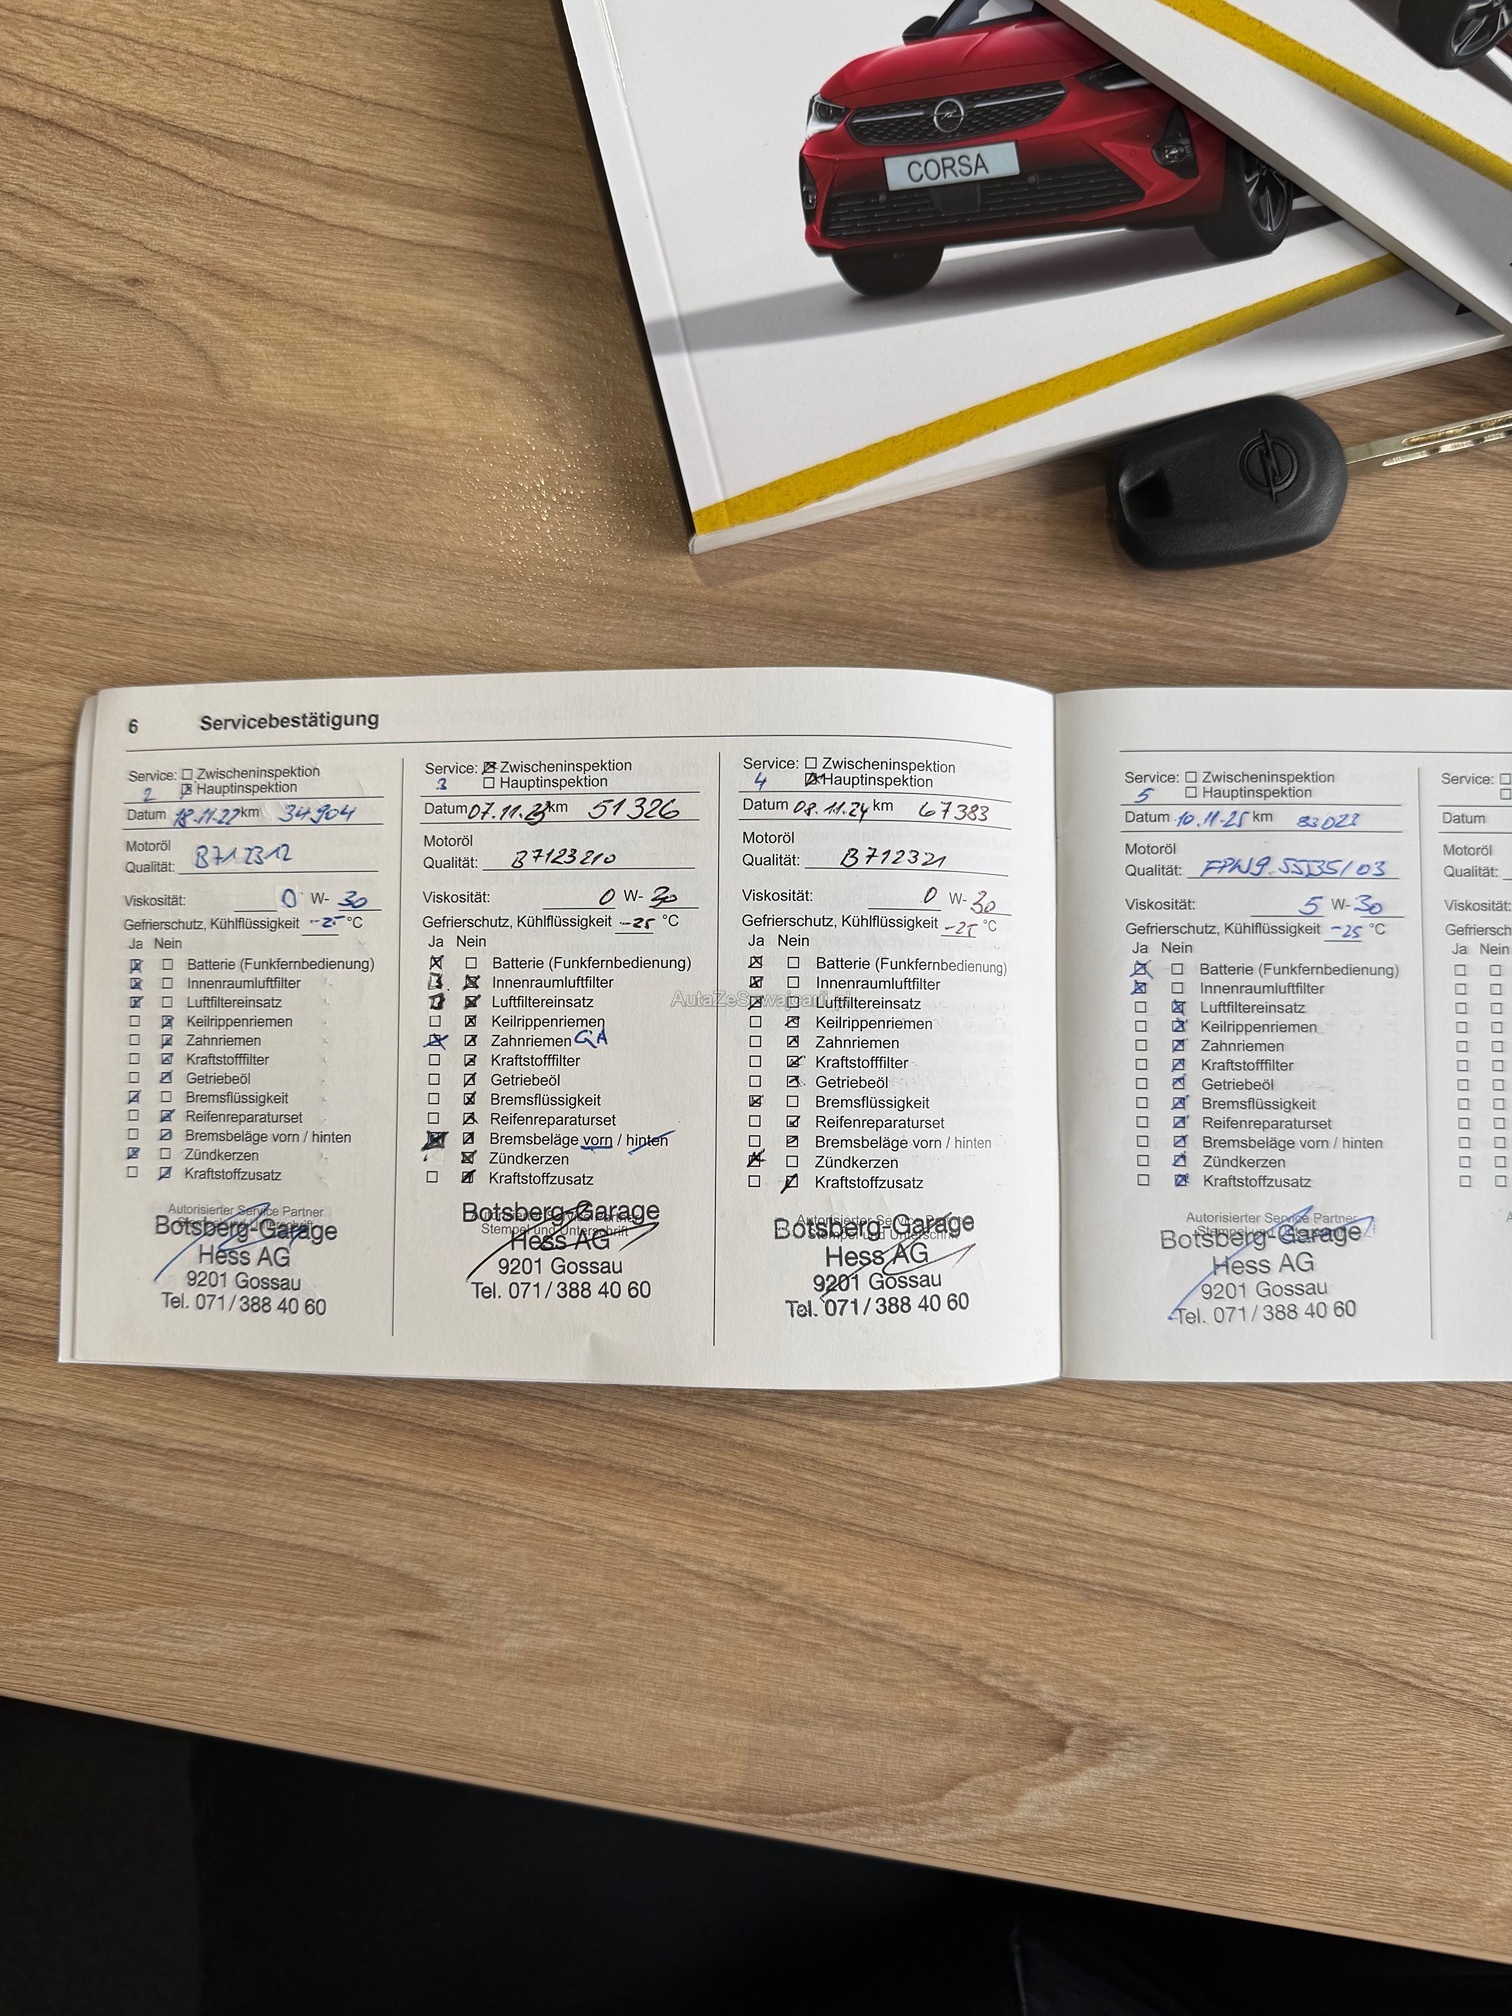 CORSA
6 Servicebestätigung
Service: Zwischeninspektion
2 Hauptinspektion
Datum 18.11.22 km 34904
Motoröl
Qualität: B712312
Viskosität: 0 W- 30
Gefrierschutz, Kühlflüssigkeit -25 °C
Ja Nein
Batterie (Funkfernbedienung)
Innenraumluftfilter
Luftfiltereinsatz
Keilrippenriemen
Zahnriemen
Kraftstofffilter
Getriebeöl
Bremsflüssigkeit
Reifenreparaturset
Bremsbeläge vorn / hinten
Zündkerzen
Kraftstoffzusatz
Autorisierter Service Partner
Stempel und Unterschrift
Botsberg-Garage
Hess AG
9201 Gossau
Tel. 071/388 40 60
Service: Zwischeninspektion
3 Hauptinspektion
Datum 07.11.23 km 51326
Motoröl
Qualität: B7123210
Viskosität: 0 W- 30
Gefrierschutz, Kühlflüssigkeit -25 °C
Ja Nein
Batterie (Funkfernbedienung)
Innenraumluftfilter
Luftfiltereinsatz
Keilrippenriemen
Zahnriemen GA
Kraftstofffilter
Getriebeöl
Bremsflüssigkeit
Reifenreparaturset
Bremsbeläge vorn / hinten
Zündkerzen
Kraftstoffzusatz
Autorisierter Service Partner
Stempel und Unterschrift
Botsberg-Garage
Hess AG
9201 Gossau
Tel. 071/388 40 60
Service: Zwischeninspektion
4 Hauptinspektion
Datum 08.11.24 km 67383
Motoröl
Qualität: B712321
Viskosität: 0 W- 30
Gefrierschutz, Kühlflüssigkeit -25 °C
Ja Nein
Batterie (Funkfernbedienung)
Innenraumluftfilter
Luftfiltereinsatz
Keilrippenriemen
Zahnriemen
Kraftstofffilter
Getriebeöl
Bremsflüssigkeit
Reifenreparaturset
Bremsbeläge vorn / hinten
Zündkerzen
Kraftstoffzusatz
Autorisierter Service Partner
Stempel und Unterschrift
Botsberg-Garage
Hess AG
9201 Gossau
Tel. 071/388 40 60
Service: Zwischeninspektion
5 Hauptinspektion
Datum 10.11.25 km 83023
Motoröl
Qualität:
Viskosität: 5 W- 30
Gefrierschutz, Kühlflüssigkeit -25 °C
Ja Nein
Batterie (Funkfernbedienung)
Innenraumluftfilter
Luftfiltereinsatz
Keilrippenriemen
Zahnriemen
Kraftstofffilter
Getriebeöl
Bremsflüssigkeit
Reifenreparaturset
Bremsbeläge vorn / hinten
Zündkerzen
Kraftstoffzusatz
Autorisierter Service Partner
Botsberg-Garage
Hess AG
9201 Gossau
Tel. 071/388 40 60
Service:
Datum
Motoröl
Qualität:
Viskosität:
Ja Nein